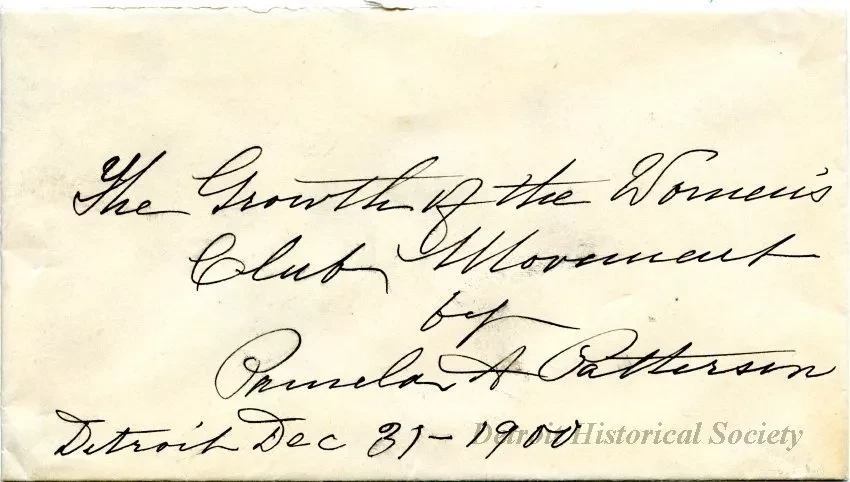 The Growth of the Women's
Club Movement
by
Pamela A Patterson
Detroit Dec 31-1900
Detroit Historical Society